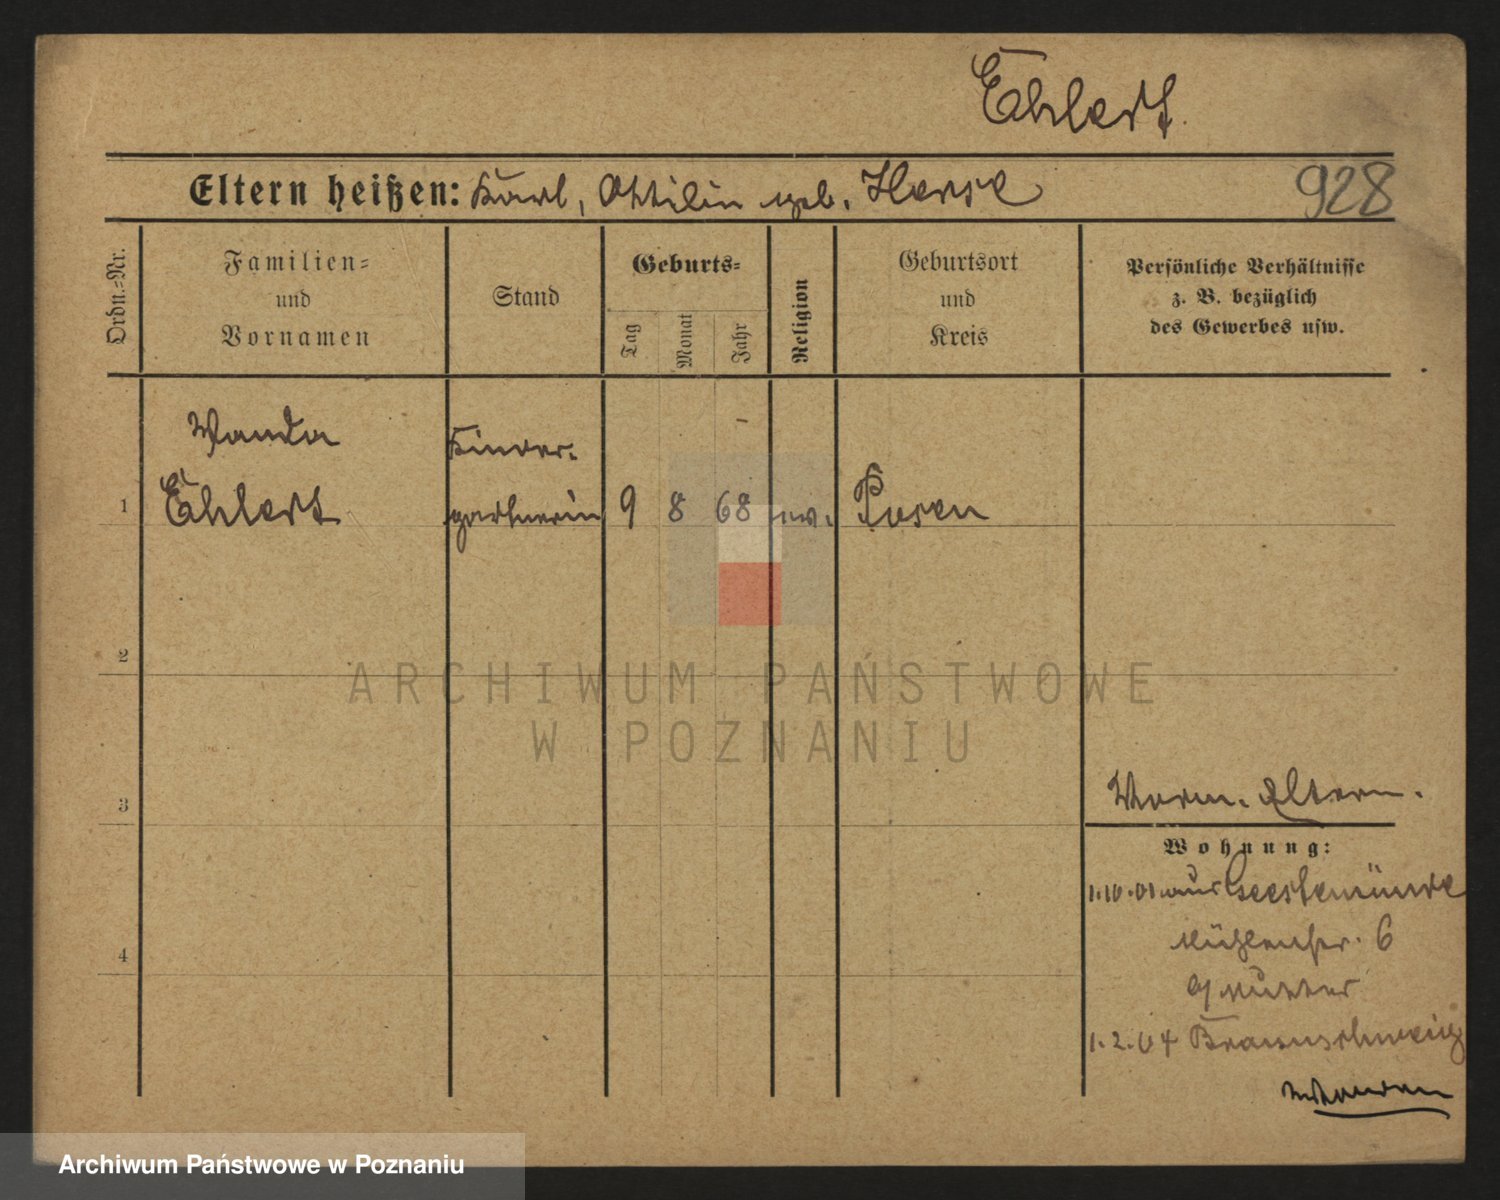 Ehlert
Eltern heißen: Karl, Ottilie geb. Herse
928
Ordn.-Nr.
Familien-
und
Vornamen
Stand
Geburts-
Tag
Monat
Jahr
Religion
Geburtsort
und
Kreis
Persönliche Verhältnisse
z. B. bezüglich
des Gewerbes usw.
Wanda Kinder-
1 Ehlert gärtnerin 9 8 68 ev. Posen
2
3
4
Eltern.
Wohnung:
1.10.01 aus Geestemünde
Mühlenstr. 6
b/ Mutter
1.2.04 Braunschweig
ARCHIWUM PAŃSTWOWE
W POZNANIU
Archiwum Państwowe w Poznaniu